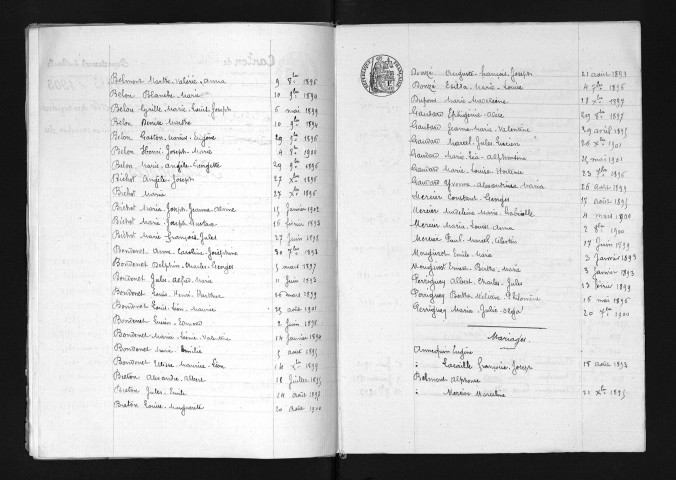 Belmont Marthe-Valérie-Anna 9 8bre 1896
Belon Blanche-Marie 10 9bre 1890
Belon Marie-Louis-Joseph 6 mai 1899
Belon Denise-Marthe 10 9bre 1894
Belon Gaston-Marius-Eugène 29 1896
Belon Henri-Joseph-Marie 29 8bre 1900
Belon Marie-Angèle-Georgette 29 9bre 1896
Bichot Angèle-Joseph 27 Xbre 1896
Bichot Maria 27 Xbre 1896
Bichot Marie-Joseph-Jeanne-Anne 15 janvier 1902
Bichot Marie-Joseph-Gustave 16 février 1893
Bichot Marie-François-Jules 27 juin 1898
Bondonet Anne-Caroline-Joséphine 30 7bre 1893
Bondonet Delphin-Charles-Georges 5 mars 1897
Bondonet Jules-Alfred-Marie 11 juin 1893
Bondonet Louis-Henri-Barthue 26 mai 1899
Bondonet Louis-Léon-Maurice 25 août 1901
Bondonet Lucien-Edmond 2 juin 1896
Bondonet Marie-Léonie-Valentine 14 janvier 1890
Bondonet Marie-Emilie 5 août 1895
Bondonet Ulysse-Maurice-Léon 14 Xbre 1899
Breton Alexandre-Albert 18 juillet 1895
Breton Jules-Emile 24 août 1897
Breton Louise-Marguerite 20 août 1900
RÉPUBLIQUE FRANÇAISE
Donzé Auguste-François-Joseph 21 août 1893
Donzé Estella-Marie-Louise 4 7bre 1896
Dupont Marie-Madeleine 18 Xbre 1897
Gaudard Ephigénie-Alice 29 8bre 1897
Gaudard Jeanne-Marie-Valentine 29 avril 1895
Gaudard Marcel-Jules-Lucien 26 Xbre 1901
Gaudard Marie-Léa-Alphonsine 26 mai 1901
Gaudard Marie-Louise-Hortense 23 7bre 1896
Gaudard Yvonne-Alexandrine-Maria 26 août 1899
Mercier Constant-Georges 17 août 1895
Mercier Madeleine-Marie-Isabelle 4 mars 1900
Mercier Marie-Louise-Anna 2 8bre 1900
Mercier Paul-Marcel-Célestin 17 juin 1899
Mougirot Emile-Marie 3 janvier 1893
Mougirot Ernest-Berthe-Marie 3 janvier 1893
Perriguey Albert-Charles-Jules 13 février 1899
Perriguey Berthe-Philomène 16 mai 1896
Perriguey Maria-Julie-Olga 20 7bre 1900
Mariages.
Annequin Eugène
Lacaille Françoise-Joseph 15 août 1893
Belmont Alphonse
Mercier Marceline 21 Xbre 1895